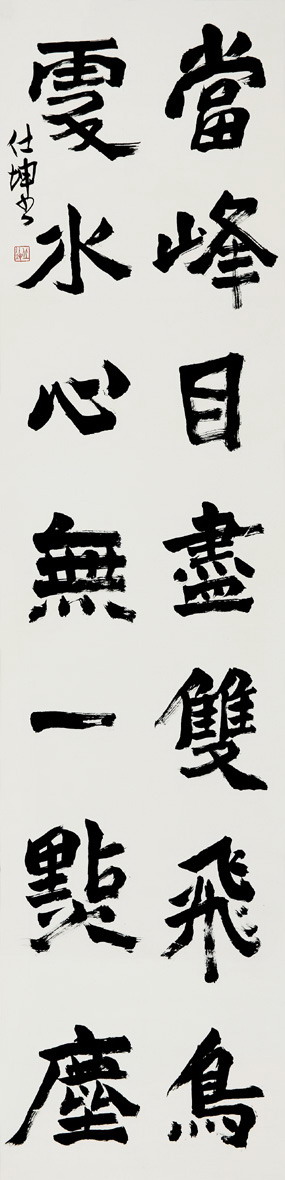 當峰目盡雙飛鳥
水心無一點塵
仕坤书